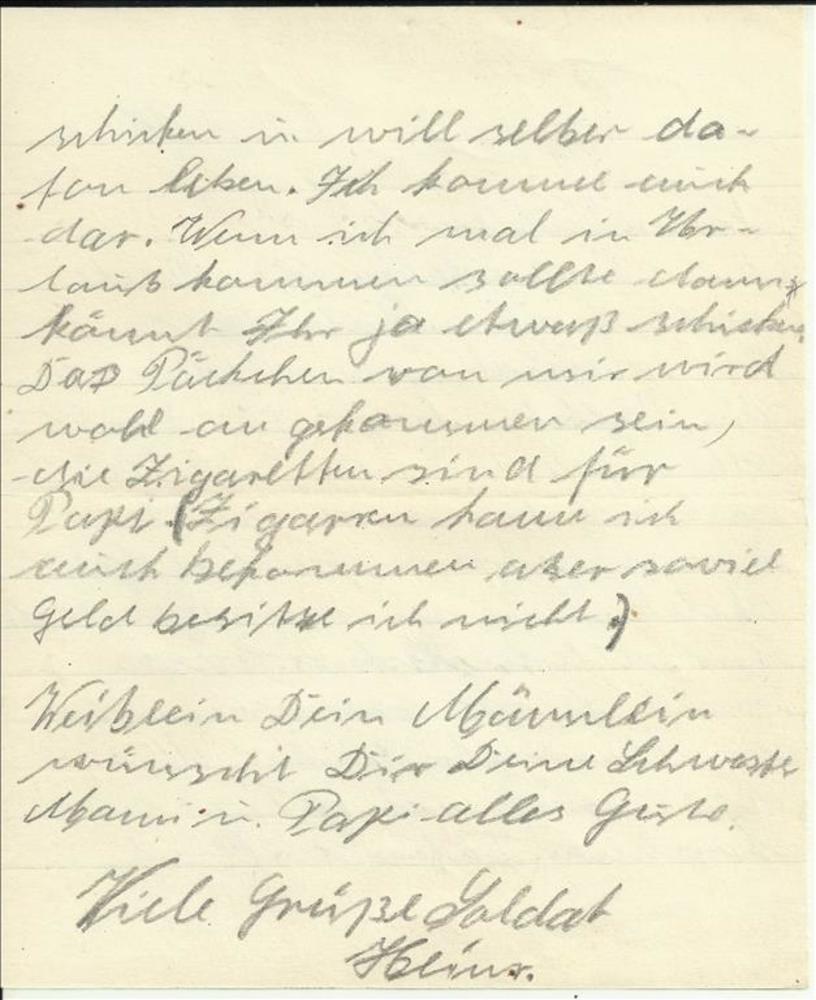 schicken u. will selber da-
fon leben. Ich komme auch
dar. Wenn ich mal in Ur-
laub kommen sollte dann
könnt Ihr ja etwaß schicken.
Daß Päckchen von mir wird
wohl an gekommen sein,
die Zigaretten sind für
Papi. (Zigarren kann ich
auch bekommen aber soviel
Geld besitze ich nicht.)
Weiblein Dein Männlein
wünscht Dir Deine Schwester
Mami u. Papi alles Gute.
Viele Grüße Soldat
Heinz.